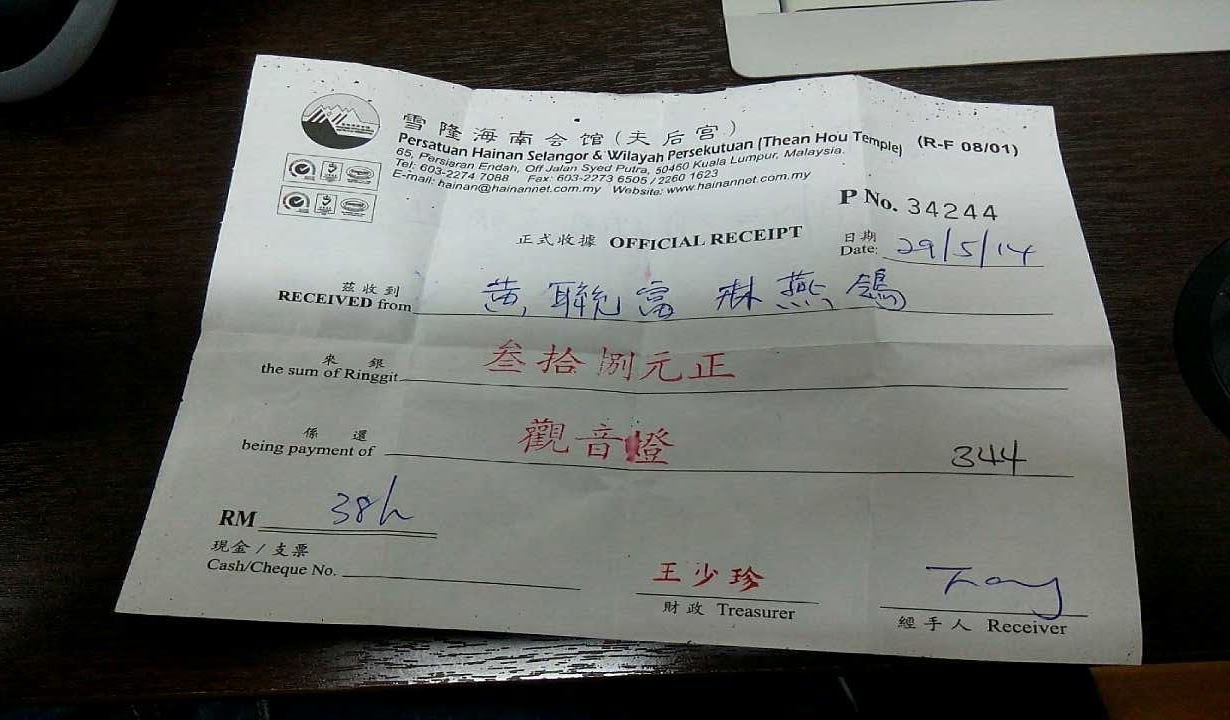 雪隆海南会馆(天后宫)
Persatuan Hainan Selangor & Wilayah Persekutuan (Thean Hou Temple) (R-F 08/01)
65, Persiaran Endah, Off Jalan Syed Putra, 50460 Kuala Lumpur, Malaysia.
Tel: 603-2274 7088 Fax: 603-2273 6505 / 2260 1623
E-mail: hainan@hainannet.com.my Website: www.hainannet.com.my
P No. 34244
正式收據 OFFICIAL RECEIPT
日期
Date: 29/5/14
茲收到
RECEIVED from 黄聯富 琳燕鴿
來銀
the sum of Ringgit 叁拾捌元正
係還
being payment of 觀音燈 344
RM 38/
現金/支票
Cash/Cheque No.
王少珍
財政 Treasurer
經手人 Receiver